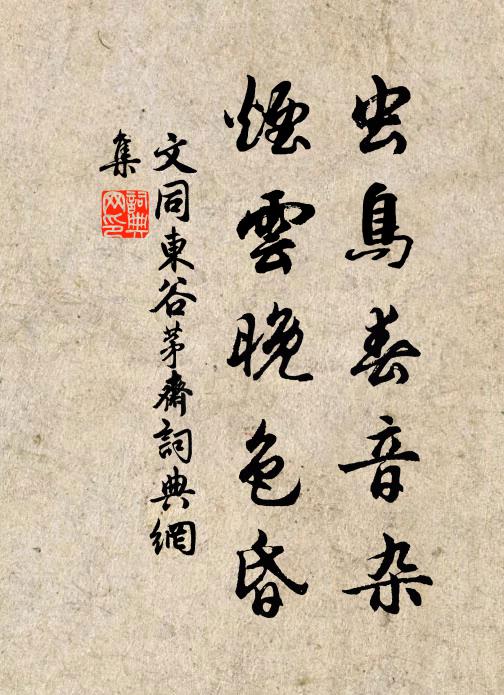 虫鳥春音杂
煙雲晚色昏
文同東谷茅齋詞典網
集
詞典
网印